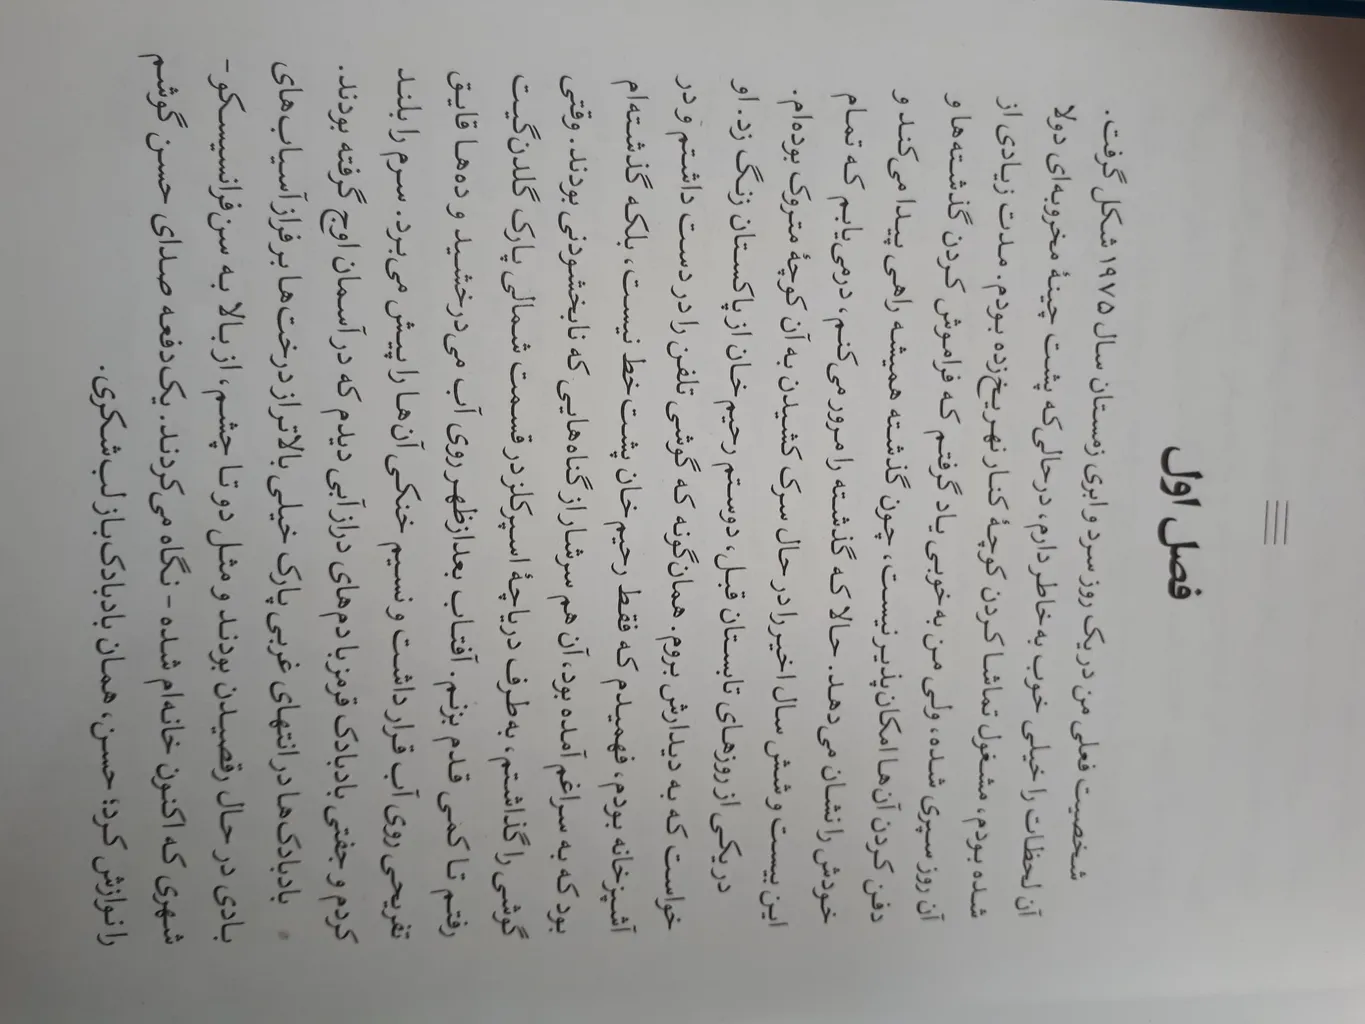 فصل اول
شخصیت فعلی من در یک روز سرد و ابری زمستان سال ۱۹۷۵ شکل گرفت.
آن لحظات را خیلی خوب به خاطر دارم، درحالی‌که پشت چینهٔ مخروبه‌ای دولا
شده بودم، مشغول تماشا کردن کوچهٔ کنار نهر یخ‌زده بودم. مدت زیادی از
آن روز سپری شده، ولی من به خوبی یاد گرفتم که فراموش کردن گذشته‌ها و
دفن کردن آن‌ها امکان‌پذیر نیست، چون گذشته همیشه راهی پیدا می‌کند و
خودش را نشان می‌دهد. حالا که گذشته را مرور می‌کنم، درمی‌یابم که تمام
این بیست و شش سال اخیر را در حال سرک کشیدن به آن کوچهٔ متروک بوده‌ام.
در یکی از روزهای تابستان قبل، دوستم رحیم خان از پاکستان زنگ زد. او
خواست که به دیدارش بروم. همان‌گونه که گوشی تلفن را در دست داشتم و در
آشپزخانه بودم، فهمیدم که فقط رحیم خان پشت خط نیست، بلکه گذشته‌ام
بود که به سراغم آمده بود، آن هم سرشار از گناه‌هایی که نابخشودنی بودند. وقتی
گوشی را گذاشتم، به‌طرف دریاچهٔ اسپرکلز در قسمت شمالی پارک گلدن‌گیت
رفتم تا کمی قدم بزنم. آفتاب بعدازظهر روی آب می‌درخشید و ده‌ها قایق
تفریحی روی آب قرار داشت و نسیم خنکی آن‌ها را پیش می‌برد. سرم را بلند
کردم و جفتی بادبادک قرمز با دم‌های دراز آبی دیدم که در آسمان اوج گرفته بودند.
بادبادک‌ها در انتهای غربی پارک خیلی بالاتر از درخت‌ها بر فراز آسیاب‌های
بادی در حال رقصیدن بودند و مثل دو تا چشم، از بالا به سن‌فرانسیسکو-
شهری که اکنون خانه‌ام شده - نگاه می‌کردند. یک‌دفعه صدای حسن گوشم
را نوازش کرد؛ حسن، همان بادبادک‌باز لب‌شکری.